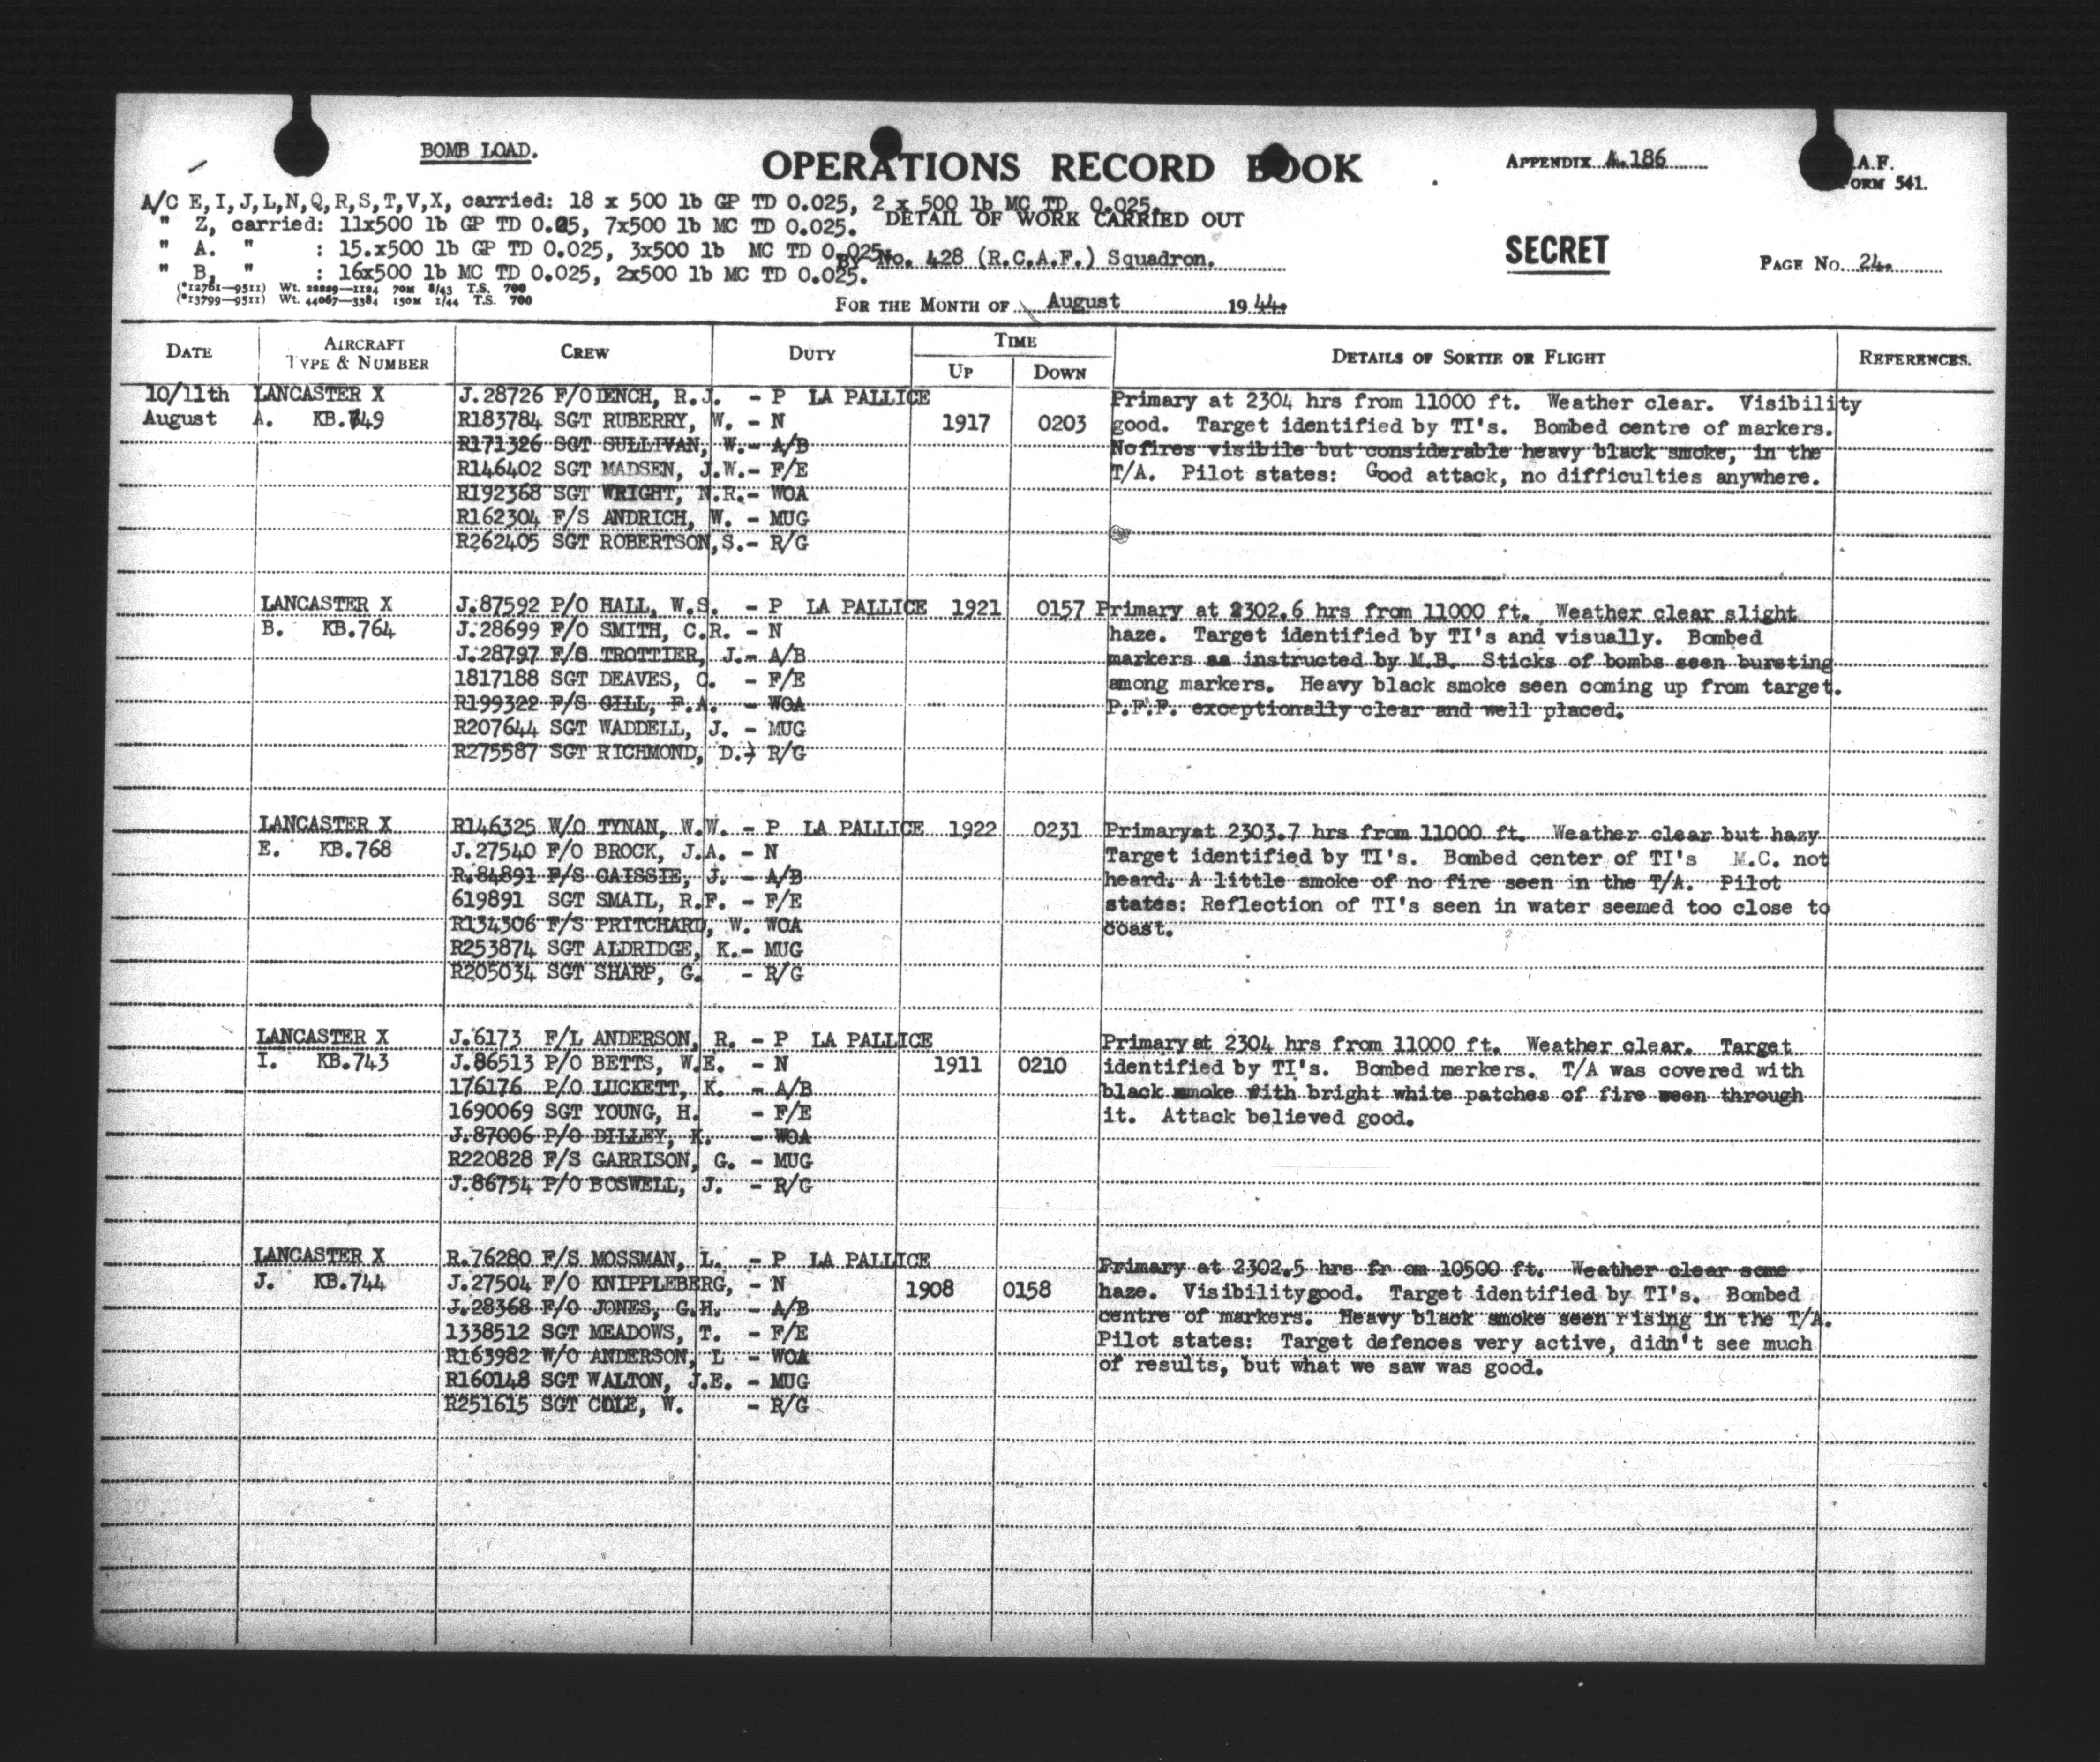 BOMB LOAD.
OPERATIONS RECORD BOOK
APPENDIX A.186
A.F.
FORM 541.
A/C E,I,J,L,N,Q,R,S,T,V,X, carried: 18 x 500 lb GP TD 0.025, 2 x 500 lb MC TD 0.025.
DETAIL OF WORK CARRIED OUT
" Z, carried: 11x500 lb GP TD 0.025, 7x500 lb MC TD 0.025.
" A. " : 15.x500 lb GP TD 0.025, 3x500 lb MC TD 0.025.
BY No. 428 (R.C.A.F.) Squadron.
SECRET
PAGE No. 24.
" B, " : 16x500 lb MC TD 0.025, 2x500 lb MC TD 0.025.
(*12761—9511) Wt. 22229—1124 70M 8/43 T.S. 700
(*13799—9511) Wt. 44067—3384 150M 1/44 T.S. 700
FOR THE MONTH OF August 1944.
DATE AIRCRAFT TYPE & NUMBER CREW DUTY TIME UP DOWN DETAILS OF SORTIE OR FLIGHT REFERENCES.
10/11th LANCASTER X J.28726 F/O IENCH, R.J. - P LA PALLICE Primary at 2304 hrs from 11000 ft. Weather clear. Visibility
August A. KB.749 R183784 SGT RUBERRY, W. - N 1917 0203 good. Target identified by TI's. Bombed centre of markers.
R171326 SGT SULLIVAN, W.- A/B Nofires visibile but considerable heavy black smoke, in the
R146402 SGT MADSEN, J.W.- F/E T/A. Pilot states: Good attack, no difficulties anywhere.
R192368 SGT WRIGHT, N.R.- WOA
R162304 F/S ANDRICH, W. - MUG
R262405 SGT ROBERTSON,S.- R/G
LANCASTER X J.87592 P/O HALL, W.S. - P LA PALLICE 1921 0157 Primary at 2302.6 hrs from 11000 ft. Weather clear slight
B. KB.764 J.28699 F/O SMITH, C.R. - N haze. Target identified by TI's and visually. Bombed
J.28797 F/O TROTTIER, J.- A/B markers as instructed by M.B. Sticks of bombs seen bursting
1817188 SGT DEAVES, C. - F/E among markers. Heavy black smoke seen coming up from target.
R199322 F/S GILL, F.A. - WOA P.F.F. exceptionally clear and well placed.
R207644 SGT WADDELL, J. - MUG
R275587 SGT RICHMOND, D.) R/G
LANCASTER X R146325 W/O TYNAN, W.W. - P LA PALLICE 1922 0231 Primaryat 2303.7 hrs from 11000 ft. Weather clear but hazy
E. KB.768 J.27540 F/O BROCK, J.A. - N Target identified by TI's. Bombed center of TI's M.C. not
R.84891 F/S GAISSIE, J. - A/B heard. A little smoke of no fire seen in the T/A. Pilot
619891 SGT SMAIL, R.F. - F/E states: Reflection of TI's seen in water seemed too close to
R134306 F/S PRITCHARD, W. WOA coast.
R253874 SGT ALDRIDGE, K.- MUG
R205034 SGT SHARP, G. - R/G
LANCASTER X J.6173 F/L ANDERSON, R. - P LA PALLICE Primary at 2304 hrs from 11000 ft. Weather clear. Target
I. KB.743 J.86513 P/O BETTS, W.E. - N 1911 0210 identified by TI's. Bombed merkers. T/A was covered with
176176 P/O LUCKETT, K. - A/B black smoke with bright white patches of fire seen through
1690069 SGT YOUNG, H. - F/E it. Attack believed good.
J.87006 P/O DILLEY, K. - WOA
R220828 F/S GARRISON, G. - MUG
J.86754 P/O BOSWELL, J. - R/G
LANCASTER X R.76280 F/S MOSSMAN, L. - P LA PALLICE Primary at 2302.5 hrs fr om 10500 ft. Weather clear some
J. KB.744 J.27504 F/O KNIPPLEBERG, - N 1908 0158 haze. Visibilitygood. Target identified by TI's. Bombed
J.28368 F/O JONES, G.H. - A/B centre of markers. Heavy black smoke seen rising in the T/A.
1338512 SGT MEADOWS, T. - F/E Pilot states: Target defences very active, didn't see much
R163982 W/O ANDERSON, L - WOA of results, but what we saw was good.
R160148 SGT WALTON, J.E. - MUG
R251615 SGT COLE, W. - R/G